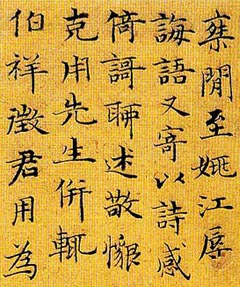 棄閒至姚江辱
誨語又寄以詩感
倚謌聊述敬懷
克用先生併輒
伯祥徵君用為